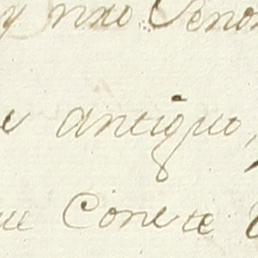 y nro Senor
e antiguo,
ue Conste